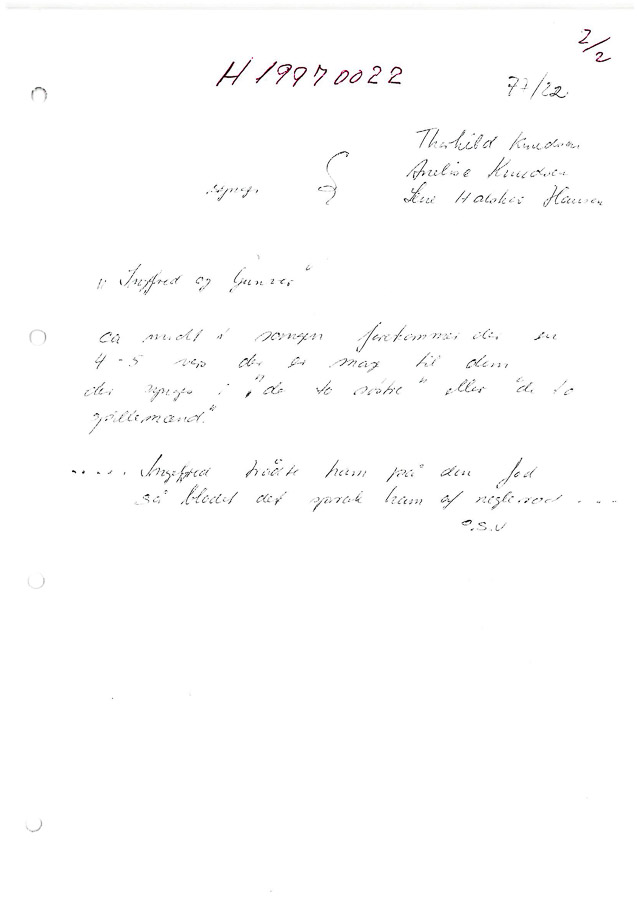 2/2
H 19970022
77/22
Thorkild Knudsen
Anelise Knudsen
synges
Lene Halskov Hansen
"Ingefred og Gunver"
ca midt i sangen forekommer der en
4-5 vers der er mag til dem
der synges i "de to søstre" eller "de to
spillemænd."
..... Ingefred trådte ham på den fod
så blodet det sprak ham af neglerod ....
o.s.v